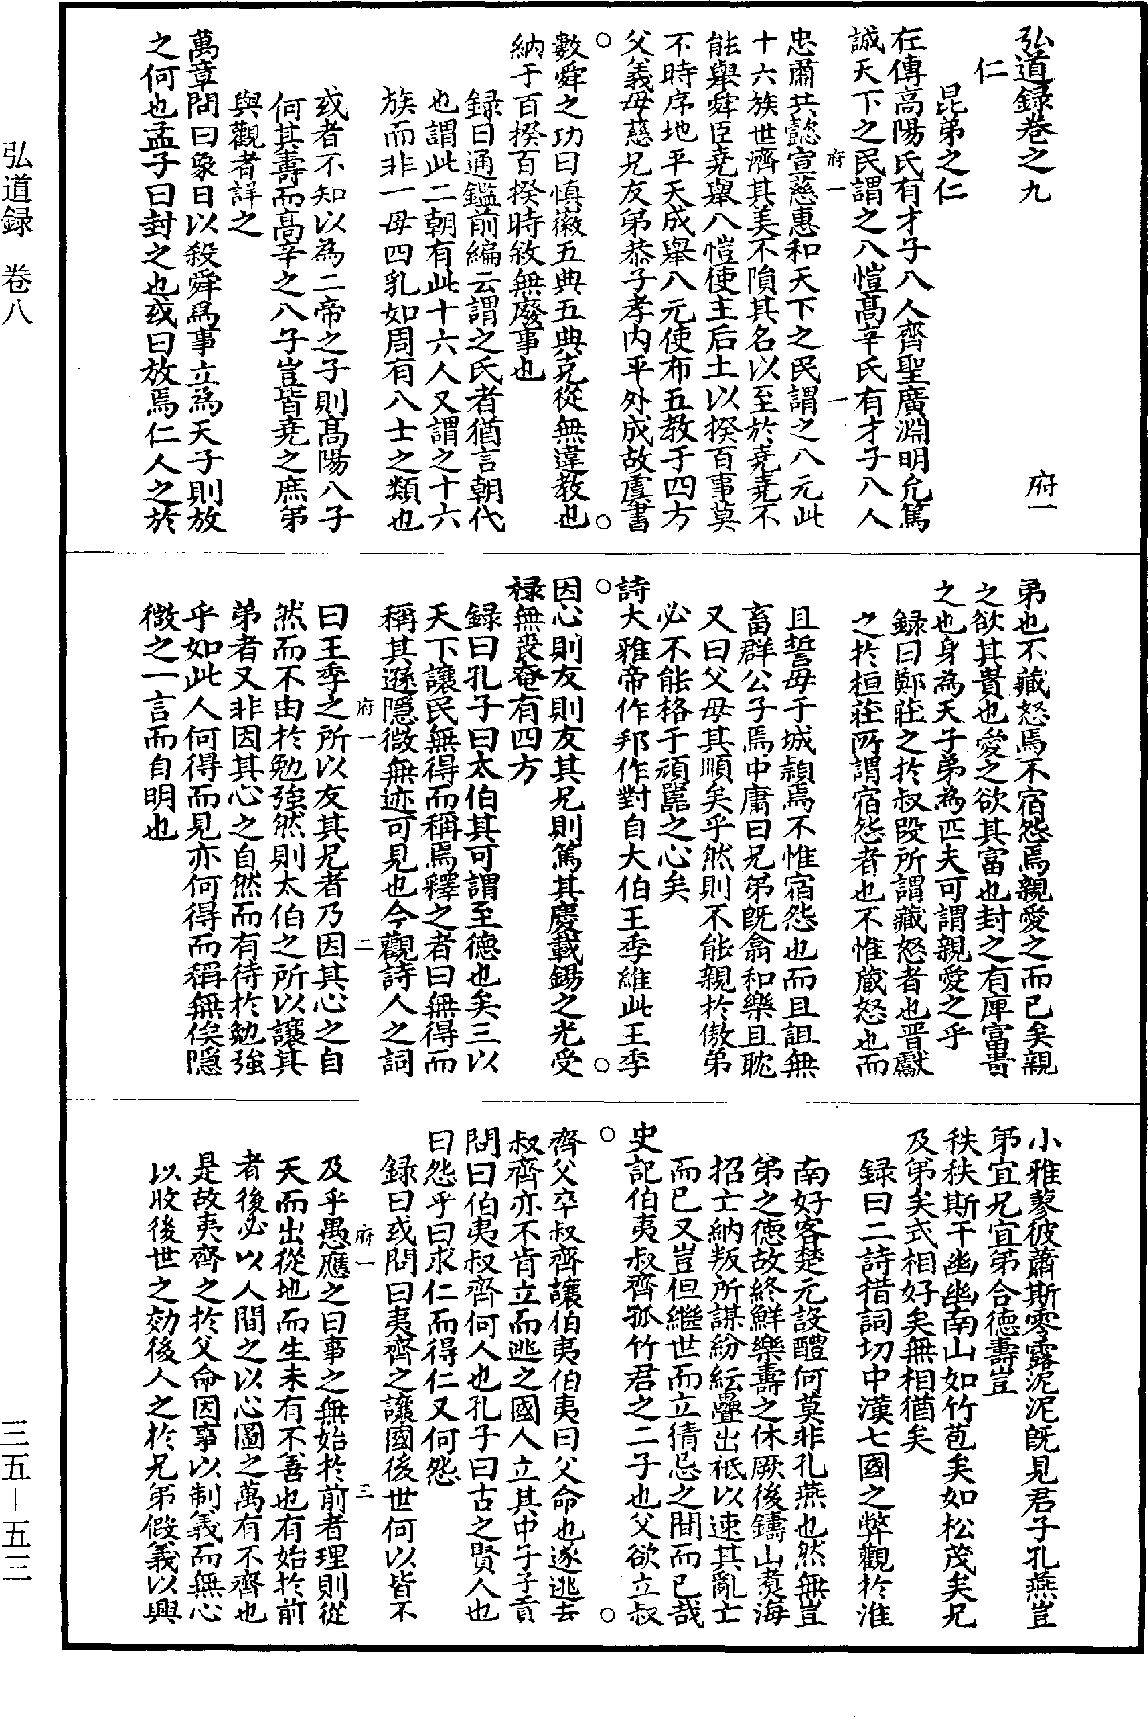 弘道録巻之九　府一
仁
昆弟之仁
在傳高陽氏有才子八人齊聖廣淵明允篤
誠天下之民謂之八愷高辛氏有才子八人
府一　一
忠肅共懿宣慈惠和天下之民謂之八元此
十六族世濟其美不隕其名以至於堯堯不
能舉舜臣堯舉八愷使主后土以揆百事莫
不時序地平天成舉八元使布五教于四方
父義母慈兄友弟恭子孝内平外成故虞書
○　○
數舜之功曰慎徽五典五典克從無違教也
納于百揆百揆時敘無廢事也
録曰通鑑前編云謂之氏者猶言朝代
也謂此二朝有此十六人又謂之十六
族而非一母四乳如周有八士之類也
或者不知以為二帝之子則高陽八子
何其壽而高辛之八子豈皆堯之庶弟
與觀者詳之
萬章問曰象日以殺舜爲事立為天子則放
之何也孟子曰封之也或曰放焉仁人之於
弟也不藏怒焉不宿怨焉親愛之而已矣親
之欲其貴也愛之欲其富也封之有庳富貴
之也身為天子弟為匹夫可謂親愛之乎
録曰鄭莊之於叔段所謂藏怒者也晋獻
之於桓莊所謂宿怨者也不惟藏怒也而
且誓母于城潁焉不惟宿怨也而且詛無
畜群公子焉中庸曰兄弟既翕和樂且耽
又曰父母其順矣乎然則不能親於傲弟
必不能格于頑嚚之心矣
詩大雅帝作邦作對自大伯王季維此王季
○　○
因心則友則友其兄則篤其慶載錫之光受
祿無喪奄有四方
録曰孔子曰太伯其可謂至德也矣三以
天下讓民無得而稱焉釋之者曰無得而
稱其遜隱微無迹可見也今觀詩人之詞
府一　二
曰王季之所以友其兄者乃因其心之自
然而不由於勉強然則太伯之所以讓其
弟者又非因其心之自然而有待於勉強
乎如此人何得而見亦何得而稱無俟隱
微之一言而自明也
小雅蓼彼蕭斯零露泥泥既見君子孔燕豈
弟宜兄宜弟令德壽豈
秩秩斯干幽幽南山如竹苞矣如松茂矣兄
及弟矣式相好矣無相猶矣
録曰二詩措詞切中漢七國之弊觀於淮
南好客楚元設醴何莫非孔燕也然無豈
弟之德故終鮮樂壽之休厥後鑄山煑海
招士納叛所謀紛紜疊出祇以速其亂士
而已又豈但繼世而立猜忌之間而已哉
史記伯夷叔齊孤竹君之二子也父欲立叔
○　○
齊父卒叔齊讓伯夷伯夷曰父命也遂逃去
叔齊亦不肯立而逃之國人立其中子子貢
問曰伯夷叔齊何人也孔子曰古之賢人也
曰怨乎曰求仁而得仁又何怨
録曰或問曰夷齊之讓國後世何以皆不
府一　三
及乎愚應之曰事之無始於前者理則從
天而出從地而生未有不善也有始於前
者後必以人間之以心圖之萬有不齊也
是故夷齊之於父命因事以制義而無心
以收後世之効後人之於兄弟假義以興
弘道録　卷八
三五—五三